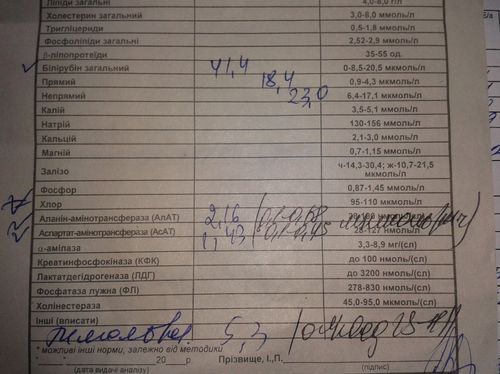 Ліпіди загальні 4,0-8,0 г/л
Холестерин загальний 3,0-8,0 ммоль/л
Тригліцериди 0,5-1,8 ммоль/л
Фосфоліпіди загальні 2,52-2,9 ммоль/л
β-ліпопротеїди 35-55 од.
Білірубін загальний 41,4 0-8,5-20,5 мкмоль/л
Прямий 18,4 0,9-4,3 мкмоль/л
Непрямий 23,0 6,4-17,1 мкмоль/л
Калій 3,5-5,1 ммоль/л
Натрій 130-156 ммоль/л
Кальцій 2,1-3,0 ммоль/л
Магній 0,7-1,15 ммоль/л
Залізо ч-14,3-30,4; ж-10,7-21,5 мкмоль/л
Фосфор 0,87-1,45 ммоль/л
Хлор 95-110 ммоль/л
Аланін-амінотрансфераза (АлАТ) 2,16 (0,1-0,68
Аспартат-амінотрансфераза (АсАТ) 1,43 0,1-0,45
α-амілаза 3,3-8,9 мг/(сл)
Креатинфосфокіназа (КФК) до 100 нмоль/(сл)
Лактатдегідрогеназа (ЛДГ) до 3200 нмоль/(сл)
Фосфатаза лужна (ФЛ) 278-830 нмоль/(сл)
Холінестераза 45,0-95,0 мкмоль/(сл)
Інші (вписати)
5,3
* можливі інші норми, залежно від методики
20 р. Прізвище, І.,П.
(дата видачі аналізу) (підпис)